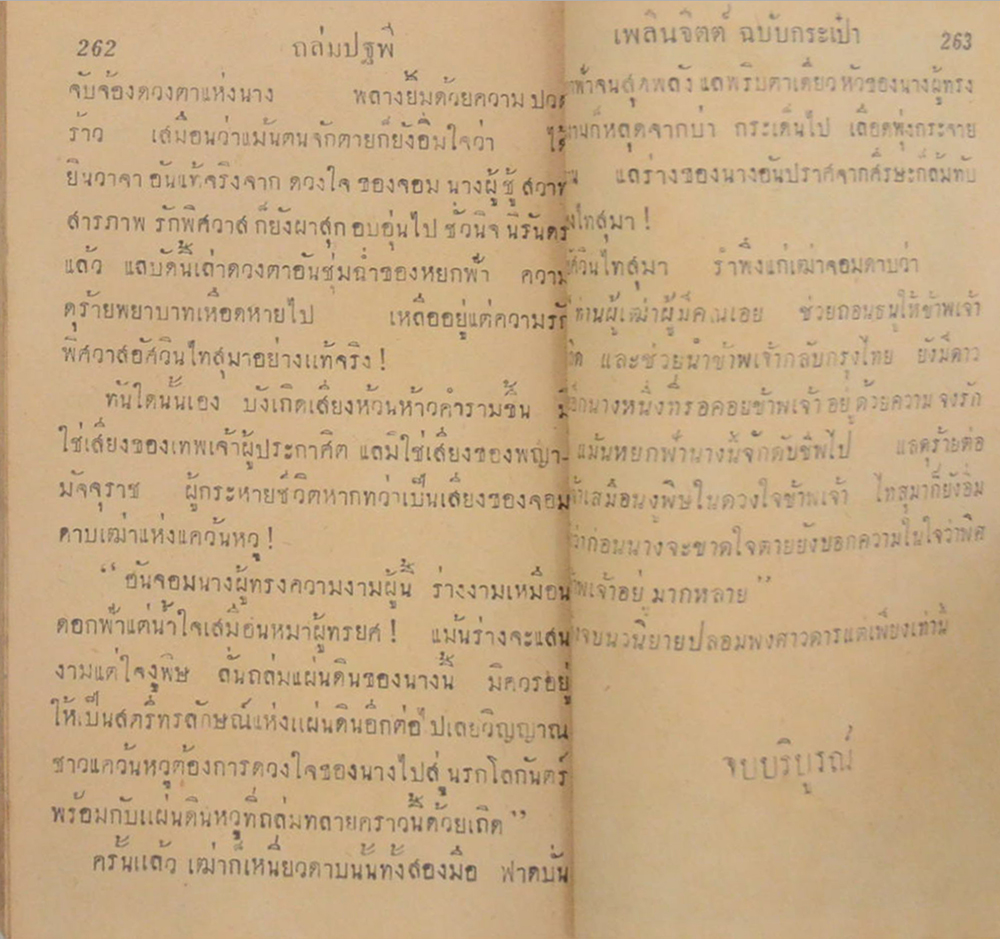 262 ถล่มปฐพี
จับจ้องดวงตาแห่งนาง พลางยิ้มด้วยความ ปวด
ร้าว เสมือนว่าแม้นตนจักตายก็ยังอิ่มใจว่า ได้
ยินวาจา อันแท้จริงจาก ดวงใจ ของจอม นางผู้ชู้ สวาท
สารภาพ รักพิศวาส ก็ยังผาสุก อบอุ่นไป ชั่วนิจ นิรันดร
แล้ว แลบัดนี้เล่าดวงตาอันชุ่มฉ่ำของหยกฟ้า ความ
ดุร้ายพยาบาทเหือดหายไป เหลืออยู่แต่ความรัก
พิศวาสอัศวินไทสุมาอย่างแท้จริง!
ทันใดนั้นเอง บังเกิดเสียงห้วนห้าวคำรามขึ้น มิ
ใช่เสียงของเทพเจ้าผู้ประกาศิต แลมิใช่เสียงของพญา-
มัจจุราช ผู้กระหายชีวิตหากทว่าเป็นเสียงของจอม
ดาบเฒ่าแห่งแคว้นหวู!
“อันจอมนางผู้ทรงความงามผู้นี้ ร่างงามเหมือน
ดอกฟ้าแต่น้ำใจเสมือนหมาผู้ทรยศ! แม้นร่างจะแสน
งามแต่ใจงูพิษ ลั่นถล่มแผ่นดินของนางนี้ มิควรอยู่
ให้เป็นสตรีทรลักษณ์แห่งแผ่นดินอีกต่อไปเลยวิญญาณ
ชาวแคว้นหวูต้องการดวงใจของนางไปสู่ นรกโลกันตร์
พร้อมกับแผ่นดินหวูที่ถล่มทลายคราวนี้ด้วยเถิด”
ครั้นแล้ว เฒ่าก็เหนี่ยวดาบนั้นทั้งสองมือ ฟาดบั่น
เพลินจิตต์ ฉบับกระเป๋า 263
จนสุดพลัง แลพริบตาเดียวหัวของนางผู้ทรง
ก็หลุดจากบ่า กระเด็นไป เลือดพุ่งกระจาย
แลร่างของนางอันปราศจากศีรษะก็ล้มทับ
ไทสุมา!
ไทสุมา รำพึงแก่เฒ่าจอมดาบว่า
ท่านผู้เฒ่าผู้มีคุณเอย ช่วยถอนธนูให้ข้าพเจ้า
และช่วยนำข้าพเจ้ากลับกรุงไทย ยังมีดาว
นางหนึ่งที่รอคอยข้าพเจ้าอยู่ด้วยความ จงรัก
แม้นหยกฟ้านางนี้จักดับชีพไป แลดุร้ายต่อ
เสมือนงูพิษในดวงใจข้าพเจ้า ไทสุมาก็ยังอิ่ม
ว่าก่อนนางจะขาดใจตายยังบอกความในใจว่าพิศ
พเจ้าอยู่ มากหลาย”
จบนวนิยายปลอมพงศาวดารแต่เพียงเท่านี้
จบบริบูรณ์